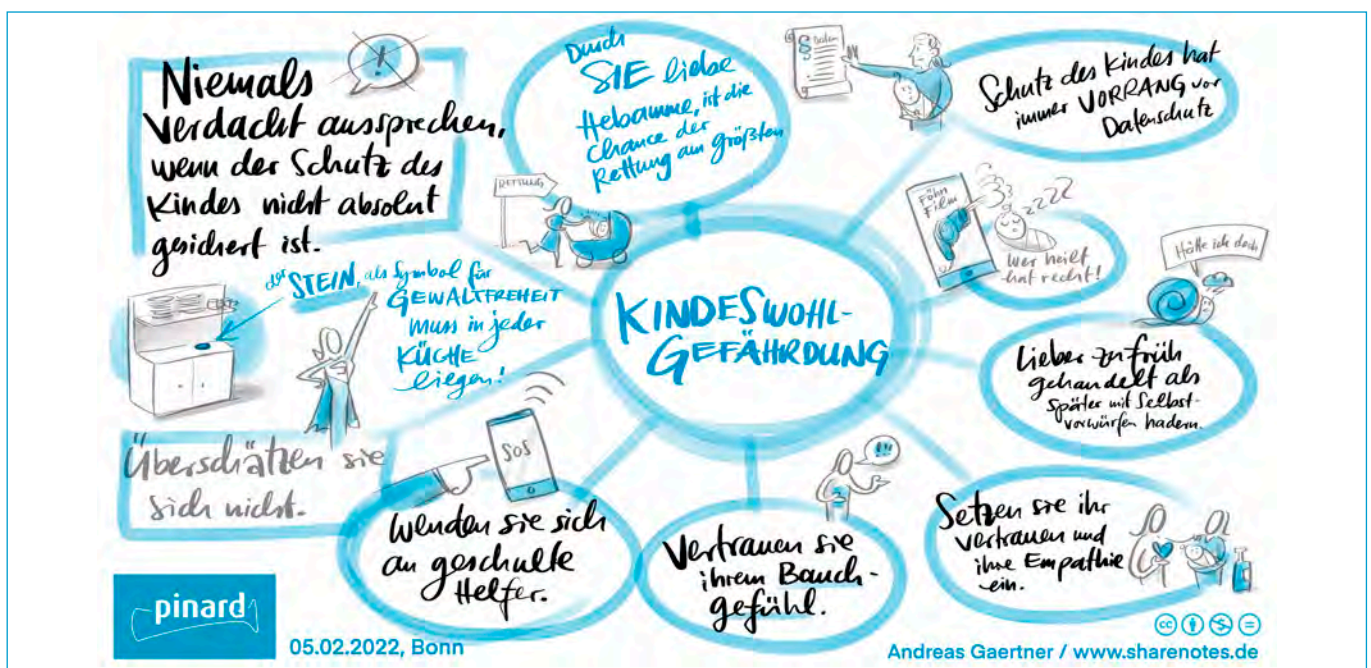 Niemals
Verdacht aussprechen,
wenn der Schutz des
Kindes nicht absolut
gesichert ist.
Durch
SIE liebe
Hebamme, ist die
Chance der
Rettung am größten
RETTUNG
§ Daten
Schutz des Kindes hat
immer VORRANG vor
Datenschutz
Föhn
Film
ZZZZ
Wer heilt
hat recht!
Hätte ich doch
der STEIN, als Symbol für
GEWALTFREIHEIT
muss in jeder
KÜCHE
liegen!
KINDESWOHL-
GEFÄHRDUNG
Lieber zu früh
gehandelt als
später mit Selbst-
vorwürfen hadern.
Überschätzen sie
sich nicht.
SOS
Wenden sie sich
an geschulte
Helfer.
Vertrauen sie
ihrem Bauch-
gefühl.
Setzen sie ihr
Vertrauen und
ihre Empathie
ein.
pinard
05.02.2022, Bonn
cc
Andreas Gaertner / www.sharenotes.de